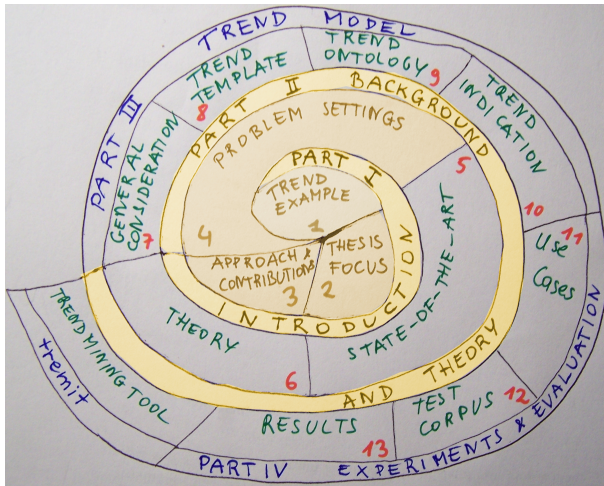 PART I
INTRODUCTION
TREND
EXAMPLE
1
THESIS
FOCUS
2
APPROACH &
CONTRIBUTIONS
3
PROBLEM SETTINGS
4
PART II
BACKGROUND
AND THEORY
STATE-OF-THE-ART
5
THEORY
6
PART III
TREND MODEL
GENERAL
CONSIDERATION
7
TREND
TEMPLATE
8
TREND
ONTOLOGY
9
TREND
INDICATION
10
PART IV
EXPERIMENTS & EVALUATION
USE
CASES
11
TEST
CORPUS
12
RESULTS
13
TRENDMINING TOOL
tremit